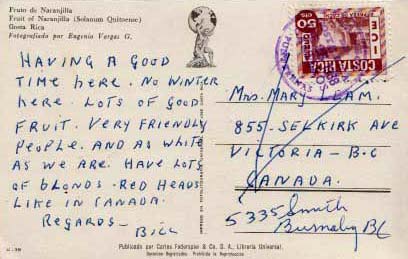 Fruto de Naranjilla
Fruit of Naranjilla (Solanum Quitoense)
Costa Rica
Fotografiado por Eugenio Vargas G.
HAVING A GOOD
TIME HERE. NO WINTER
HERE. LOTS OF GOOD
FRUIT. VERY FRIENDLY
PEOPLE. AND AS WHITE
AS WE ARE. HAVE LOTS
OF BLONDS-RED HEADS
LIKE IN CANADA.
REGARDS-
BILL
COSTA RICA
50
MRS. MARY LEAM.
855-SELKIRK AVE
VICTORIA-B.C
CANADA.
5335 Smith
Burnaby BC
Publicado por Carlos Federspiel & Co. S. A., Librería Universal.
Derechos Registrados. Prohibida la Reproducción